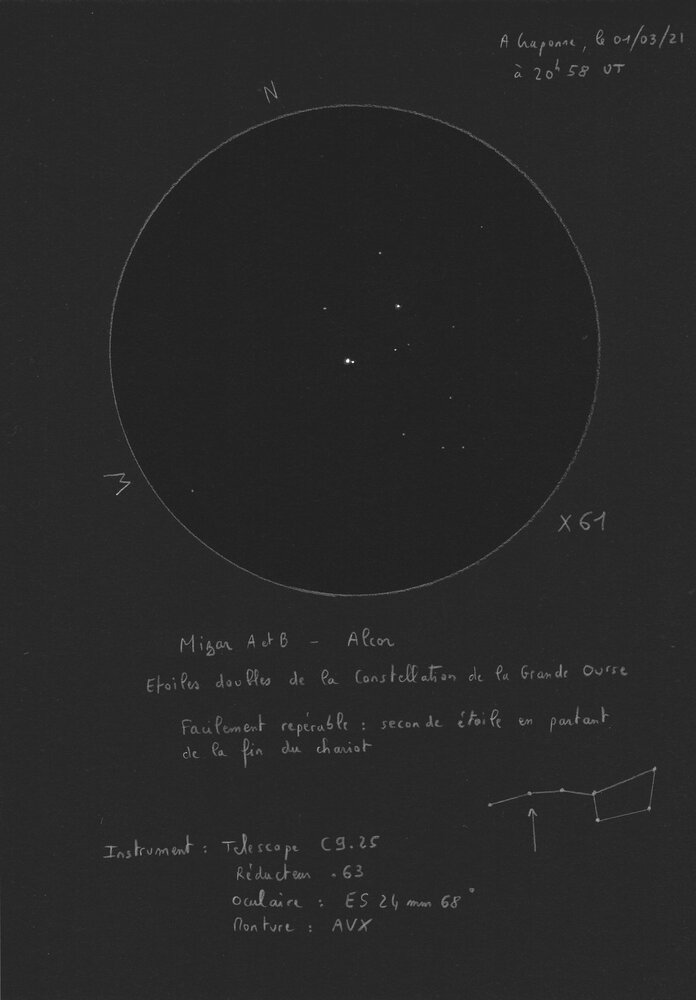 A Craponne, le 01/03/21
à 20h 58 UT
N
W
X 61
Mizar A et B - Alcor
Etoiles doubles de la Constellation de la Grande Ourse
Facilement repérable : seconde étoile en partant
de la fin du chariot
Instrument : Telescope C9.25
Réducteur .63
Oculaire : ES 24 mm 68°
Monture : AVX